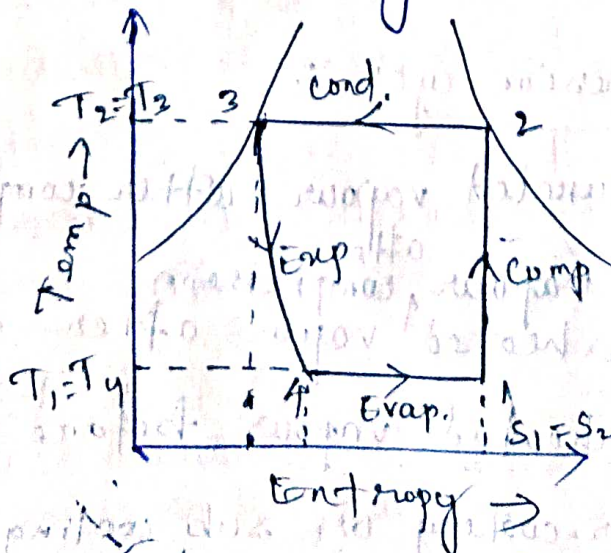 T₂=T₃
3
Cond.
2
Temp →
Exp
Comp
T₁=T₄
4
Evap.
1
S₁=S₂
Entropy →